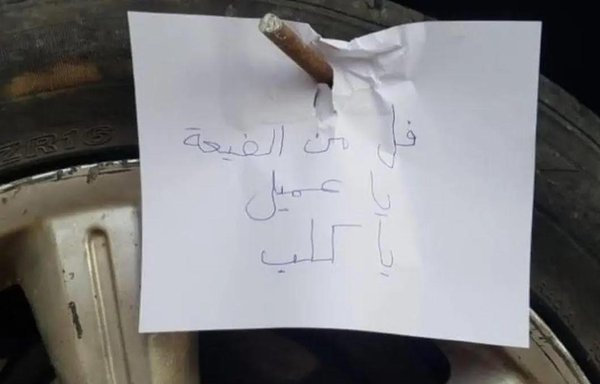 فل من الضيعة
يا عميل
يا كلب
ZR16